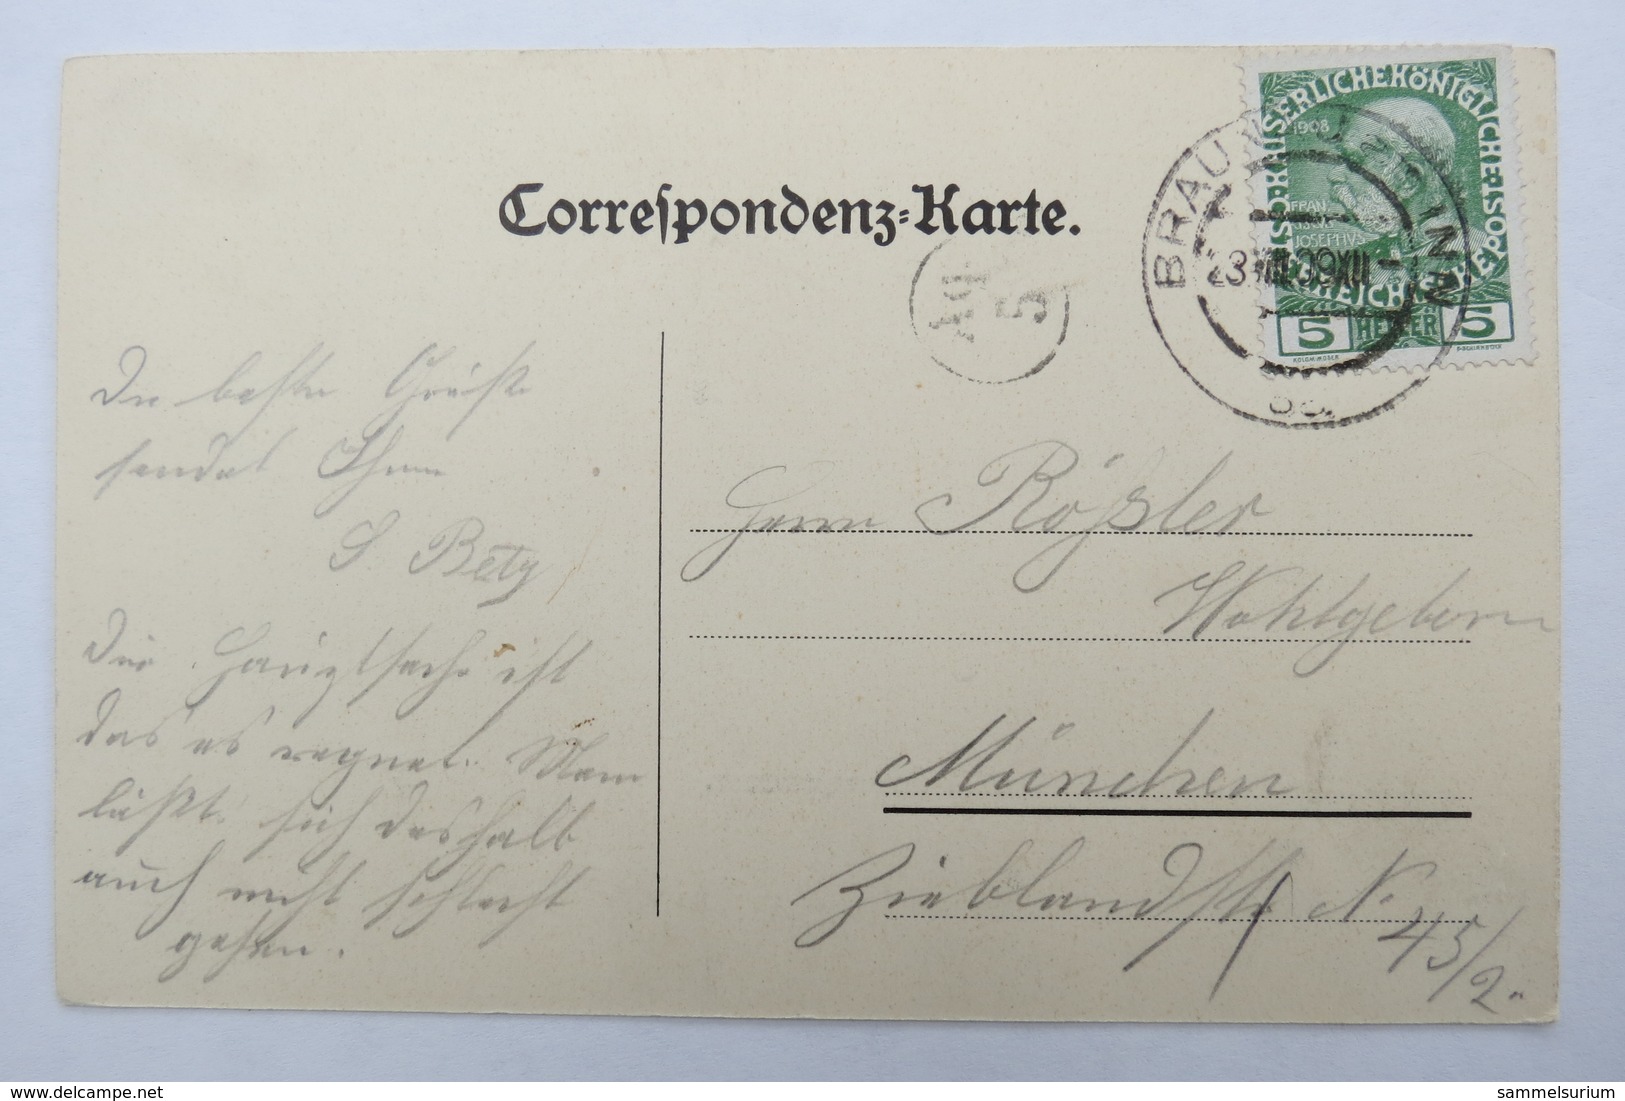 Correspondenz-Karte.
KAISERLICHE KÖNIGLICHE
1908
JOSEPHVS
5 HELLER 5
BRAUNAU INN
23.VIII.09 XII
5
Die besten Grüße
sendet Ihnen
S. Betz
Die Hauptsache ist
das es regnet. Man
läßt sich deshalb
auch nicht schlecht
gehen.
Herrn Rößler
Wohlgeboren
München
Zieblandstr N.
45/2.
delcampe.net
sammelsurium